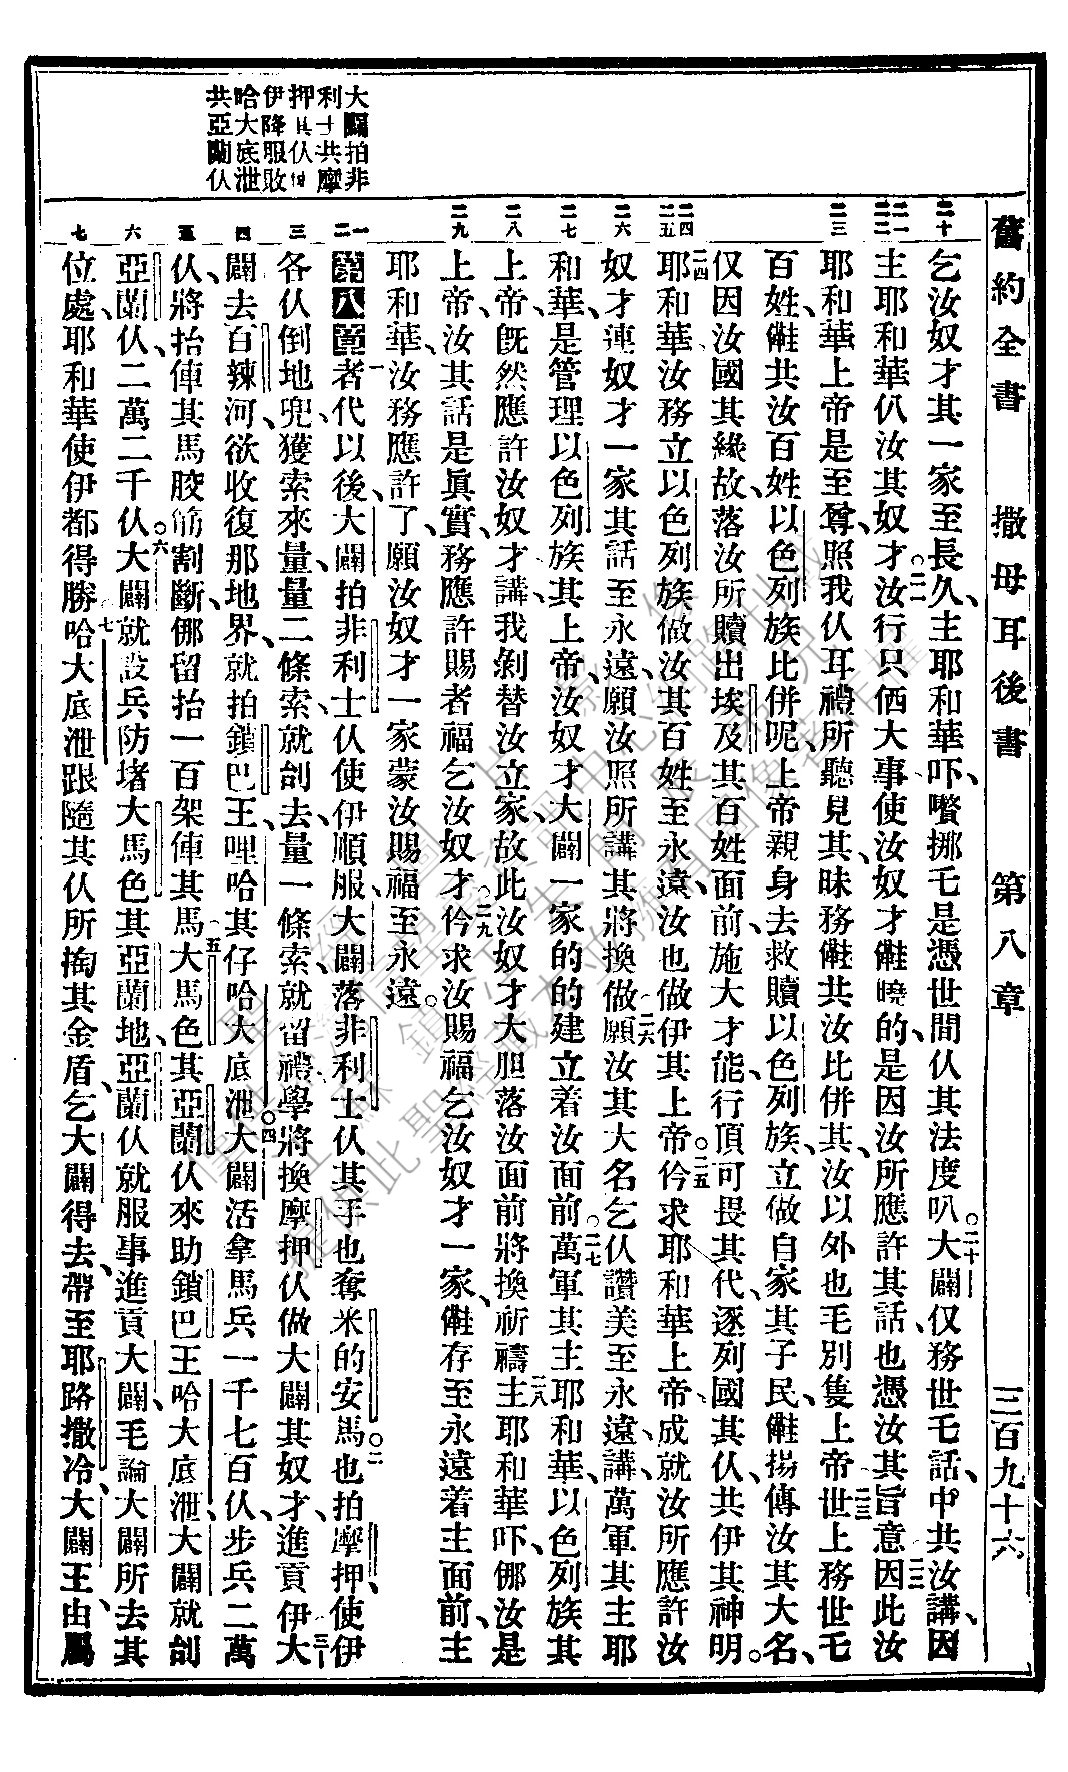 舊約全書 撒母耳後書 第八章 三百九十六
大闢拍非
利士共摩
押其仈
伊降服敗
哈大底泄
共亞蘭仈
二十
二一
二二
二三
二四
二五
二六
二七
二八
二九
一
二
三
四
五
六
七
乞汝奴才其一家至長久、主耶和華吓、嚽挪乇是憑世間仈其法度叭。二十大闢仅務世乇話、中共汝講、因
主耶和華仈汝其奴才。二一汝行只倕大事使汝奴才㑽曉的、是因汝所應許其話、也憑汝其旨意、二二因此汝
耶和華上帝是至尊、照我仈耳𥚃所聽見其、昧務㑽共汝比併其、汝以外也毛別隻上帝、二三世上務世乇
百姓、㑽共汝百姓以色列族比併呢、上帝親身去救贖以色列族、立做自家其子民、㑽揚傳汝其大名、
仅因汝國其緣故、落汝所贖出埃及其百姓面前、施大才能、行頂可畏其代、逐列國其仈、共伊其神明。
二四耶和華汝務立以色列族、做汝其百姓至永遠、汝也做伊其上帝。二五仱求耶和華上帝、成就汝所應許汝
奴才連奴才一家其話至永遠、願汝照所講其將換做、二六願汝其大名、乞仈讚美至永遠、講、萬軍其主耶
和華、是管理以色列族其上帝、汝奴才大闢一家的的建立着汝面前。二七萬軍其主耶和華、以色列族其
上帝、旣然應許汝奴才講、我剝替汝立家、故此汝奴才大胆落汝面前將換祈禱、二八主耶和華吓、㑚汝是
上帝、汝其話是眞實、務應許賜者福乞汝奴才。二九仱求汝賜福乞汝奴才一家、㑽存至永遠着主面前、主
耶和華、汝務應許了、願汝奴才一家蒙汝賜福至永遠。
第八章 一者代以後、大闢拍非利士仈、使伊順服、大闢落非利士仈其手、也奪米的安馬。二也拍摩押、使伊
各仈倒地、兜獲索來量、量二條索、就刣去、量一條索、就留𥚃學將換摩押仈做大闢其奴才、進貢、三伊大
闢去百辣河、欲收復那地界、就拍鎖巴王哩哈其仔哈大底泄。四大闢活拿馬兵一千七百仈、步兵二萬
仈、將抬俥其馬胶筋割斷、㑚留抬一百架俥其馬、五大馬色其亞蘭仈來助鎖巴王哈大底泄、大闢就刣
亞蘭仈二萬二千仈。六大闢就設兵防堵大馬色其亞蘭地、亞蘭仈就服事進貢大闢、毛論大闢所去其
位處、耶和華使伊都得勝、七哈大底泄跟隨其仈所掏其金盾、乞大闢得去、帶至耶路撒冷、大闢王由屬